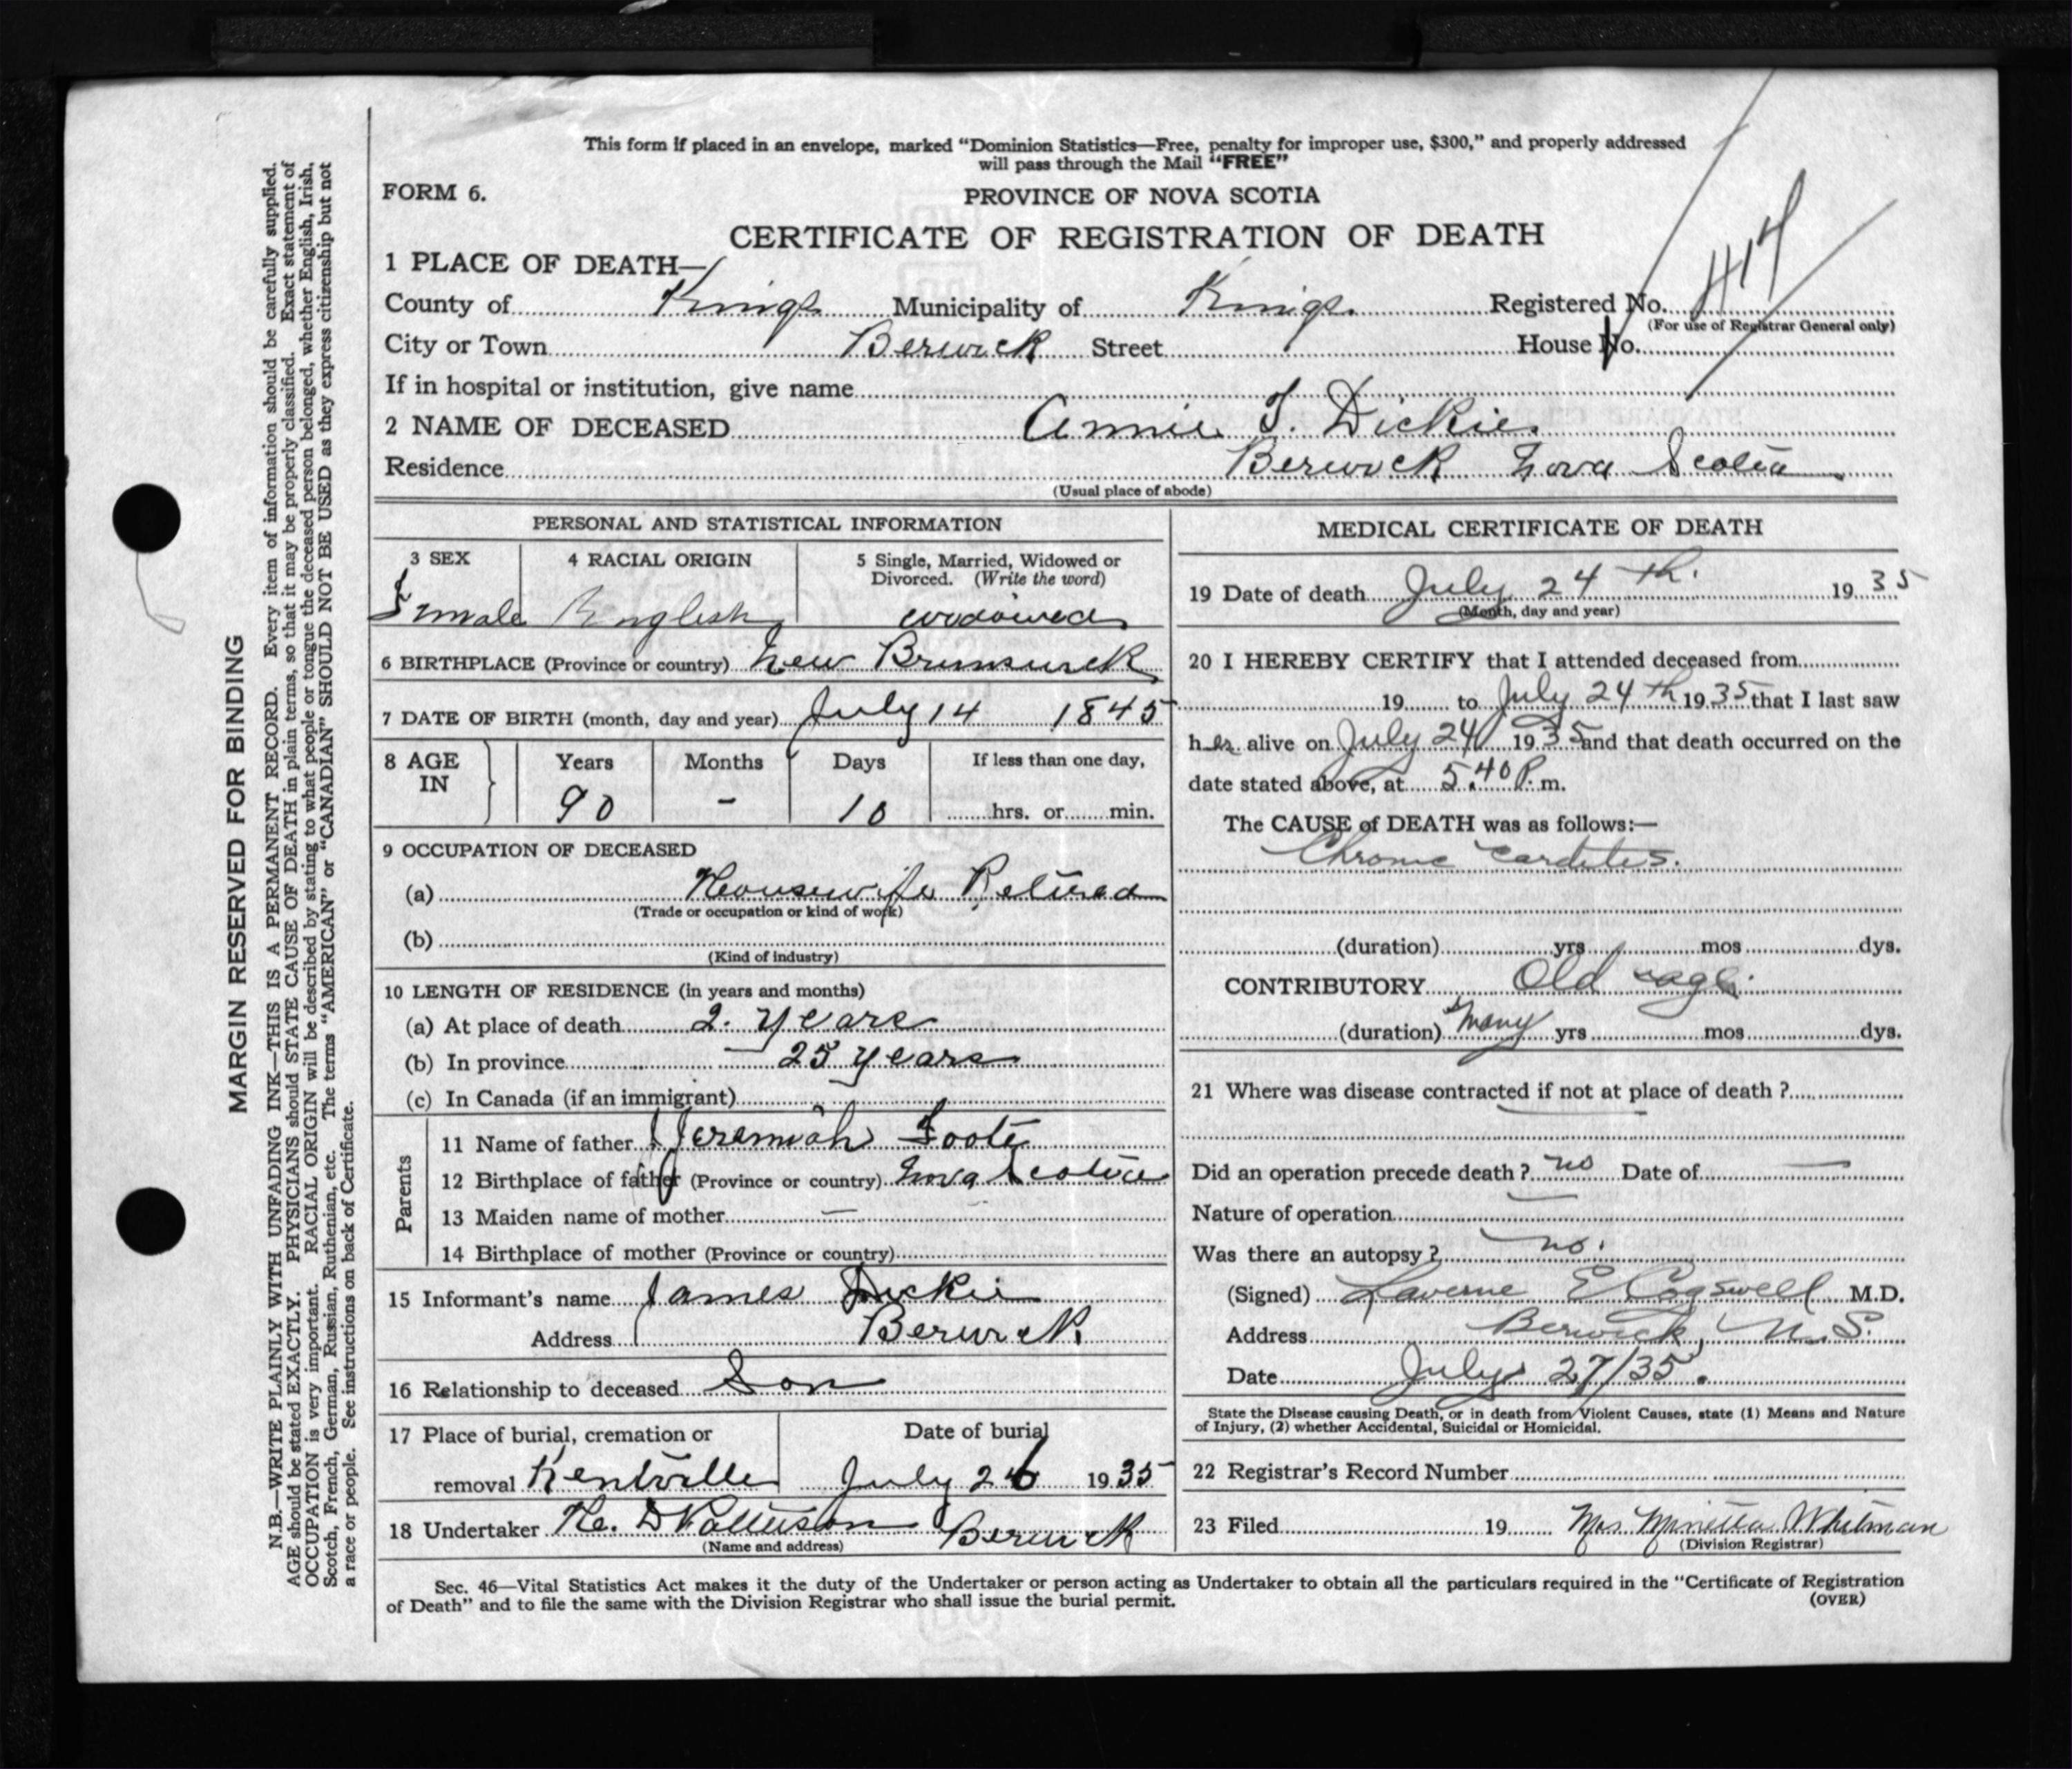 This form if placed in an envelope, marked “Dominion Statistics—Free, penalty for improper use, $300,” and properly addressed
will pass through the Mail “FREE”
FORM 6.
PROVINCE OF NOVA SCOTIA
CERTIFICATE OF REGISTRATION OF DEATH
1 PLACE OF DEATH—
County of Kings Municipality of Kings. Registered No. 414
(For use of Registrar General only)
City or Town Berwick Street House No.
If in hospital or institution, give name
2 NAME OF DECEASED Annie T. Dickie.
Residence Berwick Nova Scotia
(Usual place of abode)
PERSONAL AND STATISTICAL INFORMATION
3 SEX 4 RACIAL ORIGIN 5 Single, Married, Widowed or
Divorced. (Write the word)
Female English widowed
6 BIRTHPLACE (Province or country) New Brunswick
7 DATE OF BIRTH (month, day and year) July 14 1845
8 AGE IN Years Months Days If less than one day,
90 - 10 hrs. or min.
9 OCCUPATION OF DECEASED
(a) Housewife Retired
(Trade or occupation or kind of work)
(b)
(Kind of industry)
10 LENGTH OF RESIDENCE (in years and months)
(a) At place of death 2. years
(b) In province 25 years
(c) In Canada (if an immigrant)
Parents
11 Name of father Jeremiah Foote
12 Birthplace of father (Province or country) Nova Scotia
13 Maiden name of mother —
14 Birthplace of mother (Province or country)
15 Informant's name James Dickie
Address Berwick
16 Relationship to deceased Son
17 Place of burial, cremation or Date of burial
removal Kentville July 26 1935
18 Undertaker H. D Patterson Berwick
(Name and address)
MEDICAL CERTIFICATE OF DEATH
19 Date of death July 24th. 1935
(Month, day and year)
20 I HEREBY CERTIFY that I attended deceased from
19 to July 24th 1935 that I last saw
her alive on July 24 1935 and that death occurred on the
date stated above, at 5.40 P.m.
The CAUSE of DEATH was as follows:—
Chronic carditis.
(duration) yrs mos dys.
CONTRIBUTORY Old age.
(duration) Many yrs mos dys.
21 Where was disease contracted if not at place of death ?
—
Did an operation precede death ? no Date of —
Nature of operation —
Was there an autopsy ? no.
(Signed) Laverne E Cogswell M.D.
Address Berwick, N.S.
Date July 27/35.
State the Disease causing Death, or in death from Violent Causes, state (1) Means and Nature
of Injury, (2) whether Accidental, Suicidal or Homicidal.
22 Registrar's Record Number
23 Filed 19 Mrs. Whitman
(Division Registrar)
Sec. 46—Vital Statistics Act makes it the duty of the Undertaker or person acting as Undertaker to obtain all the particulars required in the “Certificate of Registration
of Death” and to file the same with the Division Registrar who shall issue the burial permit. (OVER)
MARGIN RESERVED FOR BINDING
N.B.—WRITE PLAINLY WITH UNFADING INK—THIS IS A PERMANENT RECORD. Every item of information should be carefully supplied.
AGE should be stated EXACTLY. PHYSICIANS should STATE CAUSE OF DEATH in plain terms, so that it may be properly classified. Exact statement of
OCCUPATION is very important. RACIAL ORIGIN will be described by stating to what people or tongue the deceased person belonged, whether English, Irish,
Scotch, French, German, Russian, Ruthenian, etc. The terms “AMERICAN” or “CANADIAN” SHOULD NOT BE USED as they express citizenship but not
a race or people. See instructions on back of Certificate.